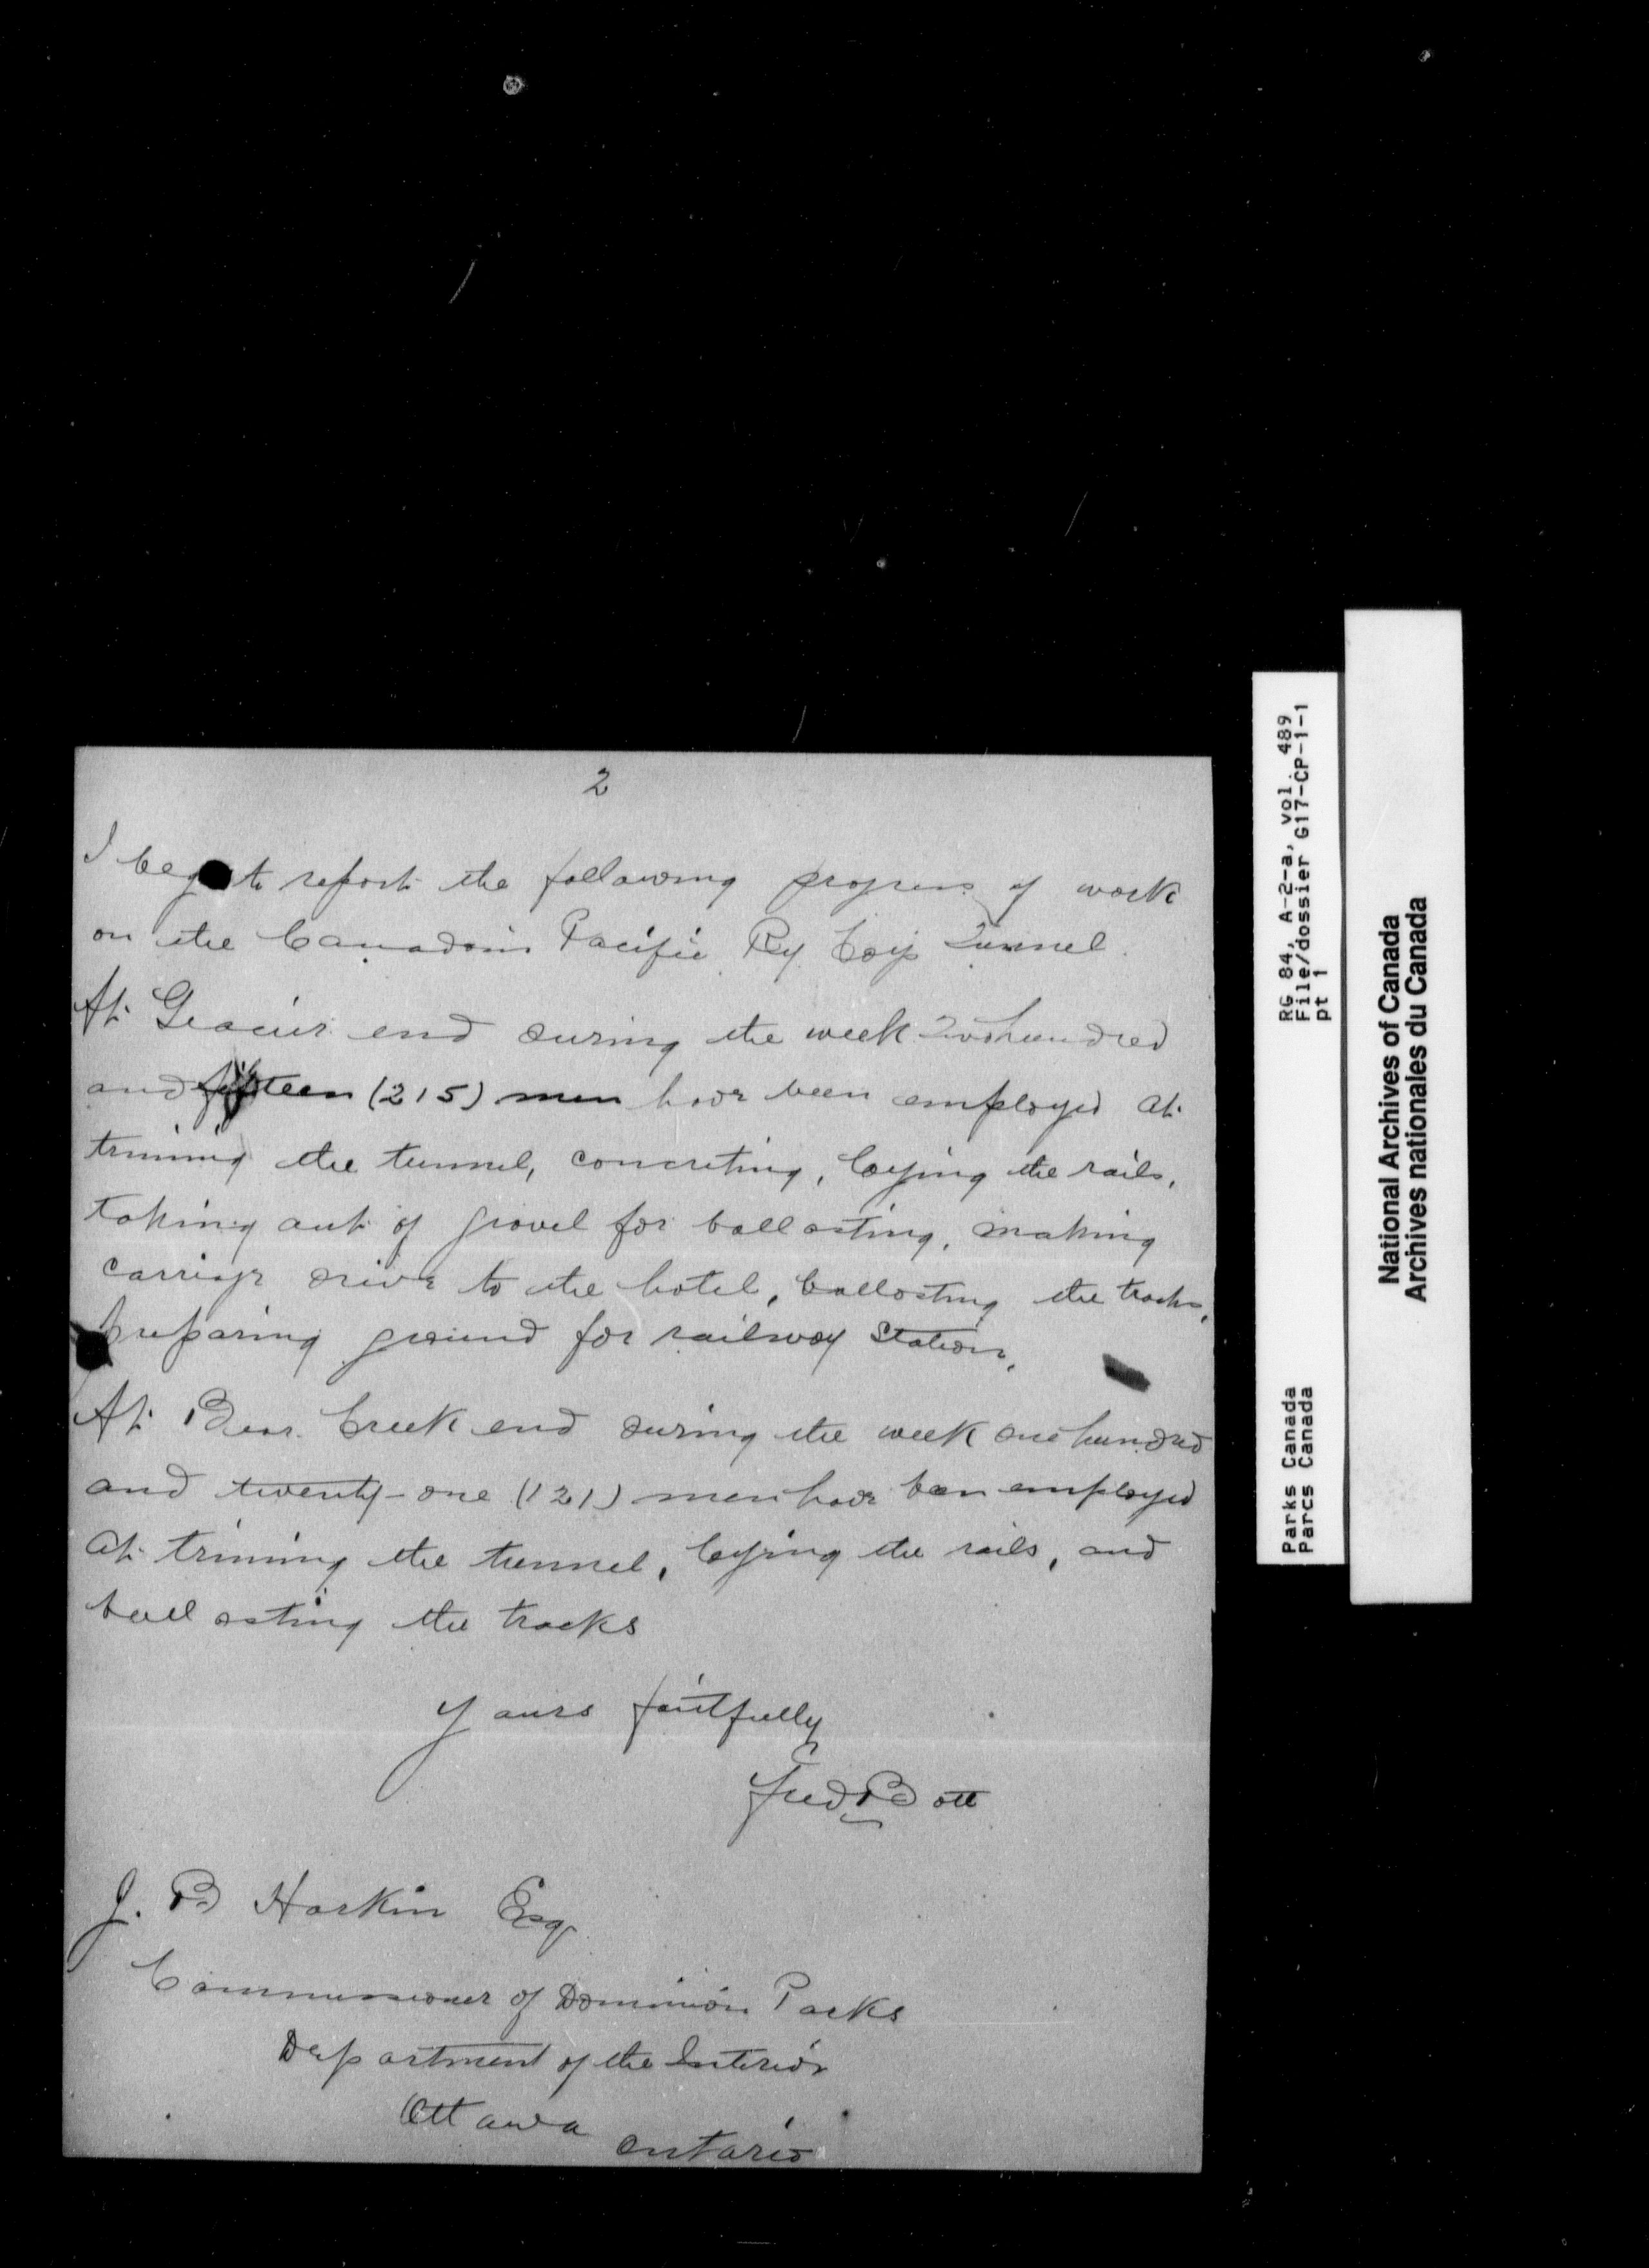 2
I beg to report the following progress of work
on the Canadain Pacific Ry Coys Tunnel.
At Glacier end during the week Two hundred
and fifteen (215) men have been employed at
trimimg the tunnel, concreting, laying the rails,
taking out of gravel for ballasting, making
carriage drive to the hotel, ballasting the tracks,
preparing ground for railway Station,
At Bear Creek end during the week one hundred
and twenty-one (121) men have been employed
at triming the tunnel, laying the rails, and
ballasting the tracks
Yours faithfully
Fred Bott
J. B Harkin Esq
Commissioner of Dominion Parks
Department of the Interior
Ottawa
Ontario
RG 84, A-2-a, vol. 489
File/dossier G17-CP-1-1
pt 1
Parks Canada
Parcs Canada
National Archives of Canada
Archives nationales du Canada